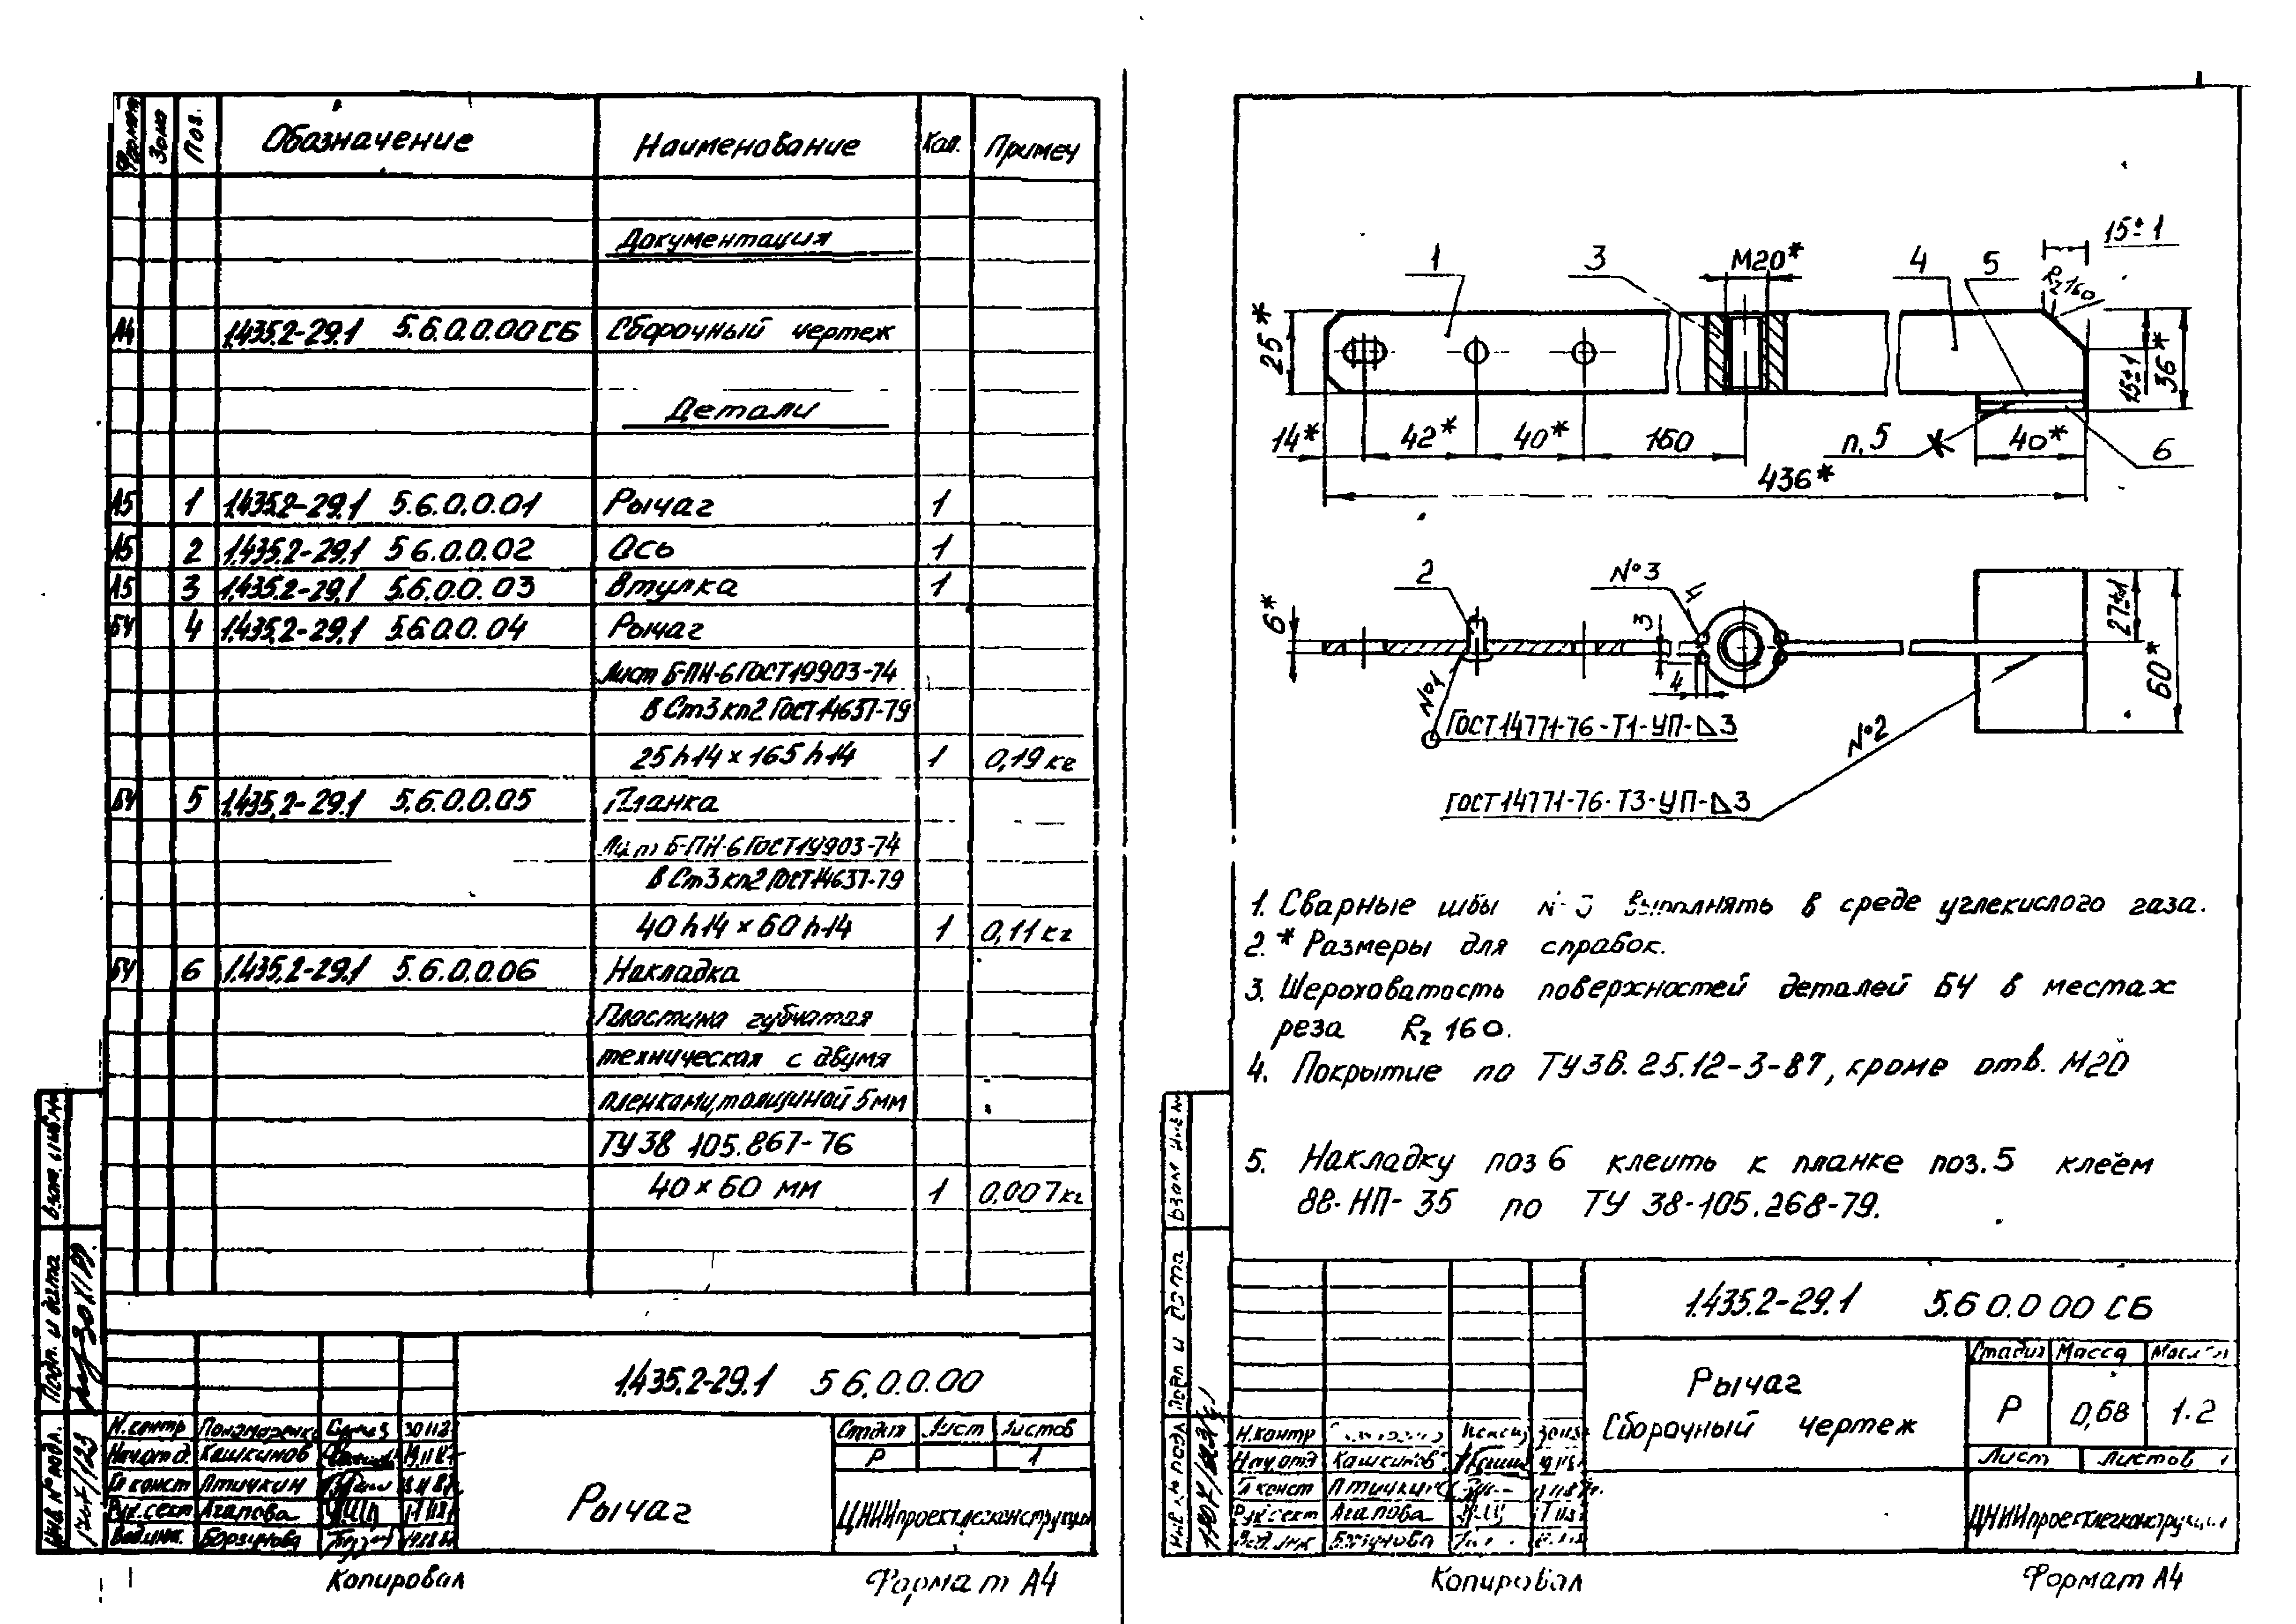 Формат Зона Поз. Обозначение Наименование Кол. Примеч
Документация
А4 1.435.2-29.1 5.6.0.0.00 СБ Сборочный чертеж
Детали
А5 1 1.435.2-29.1 5.6.0.0.01 Рычаг 1
А5 2 1.435.2-29.1 5 6.0.0.02 Ось 1
А5 3 1.435.2-29.1 5.6.0.0.03 Втулка 1
БЧ 4 1.435.2-29.1 5.6.0.0.04 Рычаг
Лист Б-ПН-6 ГОСТ 19903-74
В Ст3 кп2 ГОСТ 14637-79
25 h14 × 165 h14 1 0,19 кг
БЧ 5 1.435.2-29.1 5.6.0.0.05 Планка
Лист Б-ПН-6 ГОСТ 19903-74
В Ст3 кп2 ГОСТ 14637-79
40 h14 × 60 h14 1 0,11 кг
БЧ 6 1.435.2-29.1 5.6.0.0.06 Накладка
Пластина губчатая
техническая с двумя
пленками, толщиной 5 мм
ТУ 38 105.867-76
40 × 60 мм 1 0,007 кг
Взам. инв. №
Подп. и дата
Инв. № подл.
1.435.2-29.1 5 6.0.0.00
Н.контр Пономаренко
Нач.отд. Кашкинов
Гл констр Птичкин
Рук.сект Агапова
Вед.инж. Борзунова
Рычаг
Стадия Лист Листов
Р 1
ЦНИИпроектлегконструкция
Копировал Формат А4
15±1
1 3 М20* 4 5
Rz 160
25*
15±1
36*
14* 42* 40* 160 п.5 40* 6
436*
2 №3
6* 3
4
27±1
60*
№1
ГОСТ 14771-76-Т1-УП-⊿3
№2
ГОСТ 14771-76-Т3-УП-⊿3
1. Сварные швы выполнять в среде углекислого газа.
2. * Размеры для справок.
3. Шероховатость поверхностей деталей БЧ в местах
реза Rz 160.
4. Покрытие по ТУ 36.25.12-3-87, кроме отв. М20
5. Накладку поз 6 клеить к планке поз. 5 клеем
88-НП-35 по ТУ 38-105.268-79.
Взам инв №
Подп и дата
Инв № подл
1.435.2-29.1 5.6 0.0 00 СБ
Н.контр
Нач.отд Кашкинов
Гл конст Птичкин
Рук сект Агапова
Вед. инж Борзунова
Рычаг
Сборочный чертеж
Стадия Масса Масштаб
Р 0,68 1:2
Лист Листов 1
ЦНИИпроектлегконструкция
Копировал Формат А4